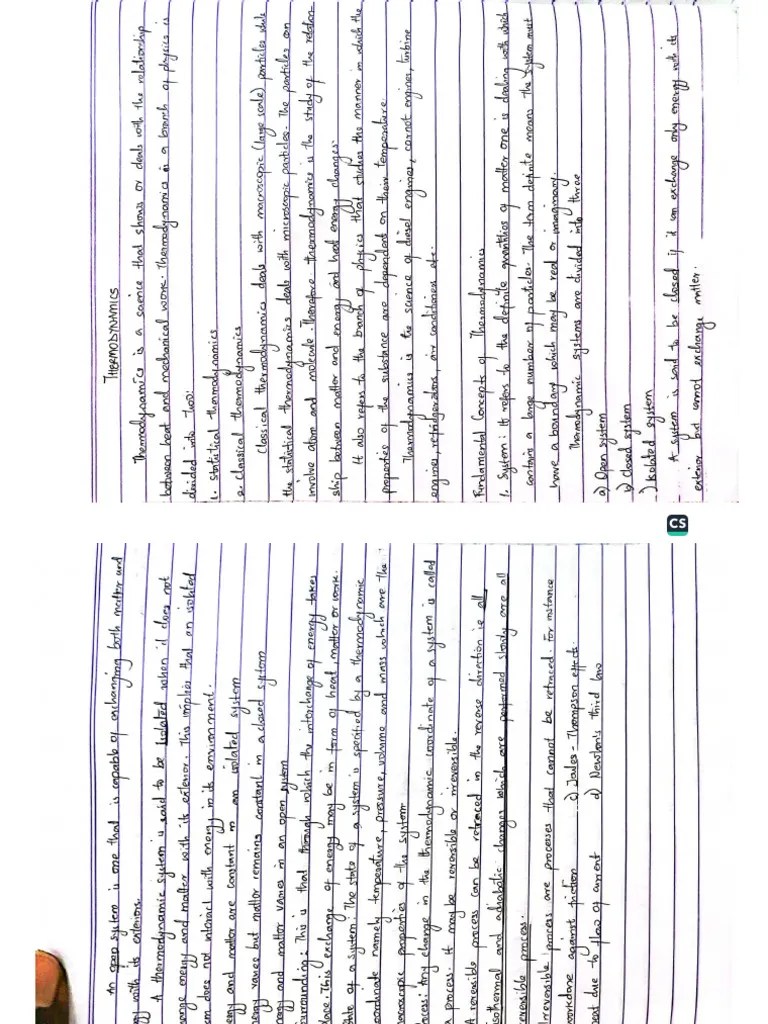 THERMODYNAMICS
Thermodynamics is a science that shows or deals with the relationship
between heat and mechanical work. Thermodynamics is a branch of physics is
divided into Two:
1. Statistical thermodynamics
2. Classical thermodynamics
Classical thermodynamics deals with macroscopic (large scale) particles while
the statistical thermodynamics deals with microscopic particles. The particles can
involve atom and molecule. Therefore thermodynamics is the study of the relation-
ship between matter and energy and heat energy changes.
It also refers to the branch of physics that studies the manner in which the
properties of the substance are dependent on their temperature.
Thermodynamics is the science of diesel engines, carnot engines, turbine
engines, refridgerators, air conditioners etc.
Fundamental Concepts of Thermodynamics
1. System: It refers to the definite quantities of matter one is dealing with which
contains a large number of particles. The term definite means the system must
have a boundary which may be real or imaginary.
Thermodynamic systems are divided into three
a) Open system
b) Closed system
) Isolated system
A system is said to be closed if it can exchange only energy with its
exterior but cannot exchange matter.
CS
An open system is one that is capable of exchanging both matter and
gy with its exteriors.
A thermodynamic system is said to be Isolated when it does not
ange energy and matter with its exterior. This implies that an isolated
em does not interact with energy in its environment.
ergy and matter are constant in an isolated system
ergy varies but matter remains constant in a closed system
ergy and matter varies in an open system
urrounding: This is that through which the interchange of energy takes
lace. This exchange of energy may be in form of heat, matter or work.
tate of a system: The state of a system is specified by a thermodynamic
oordinate namely temperature, pressure, volume and mass which are the
acroscopic properties of the system
rocess: Any change in the thermodynamic coordinate of a system is called
a process. It may be reversible or irreversible.
A reversible process can be retraced in the reverse direction ie all
isothermal and adiabatic changes which are performed slowly are all
reversible process.
Irreversible process are processes that cannot be retraced. For instance
workdone against friction c) Joules - Thompson effects.
eat due to flow of current d) Newton's third law